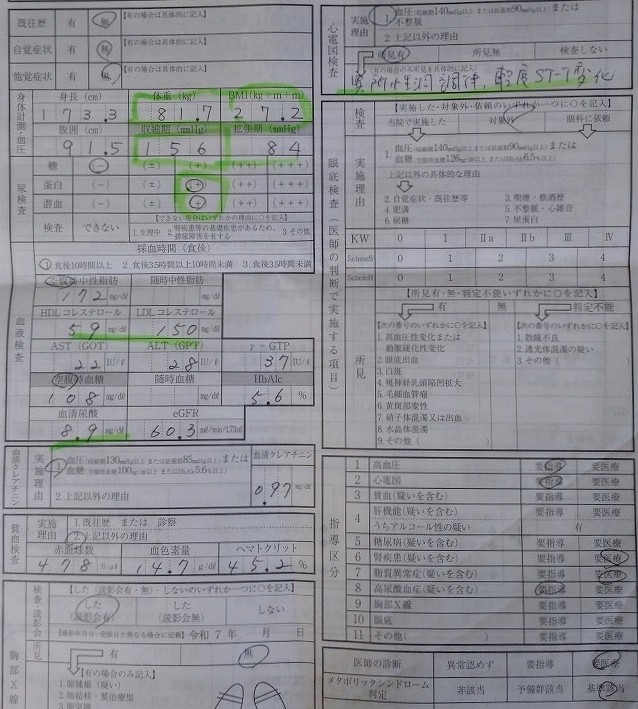 既往歴 有 無 【有の場合は具体的に記入】
自覚症状 有 無 【有の場合は具体的に記入】
他覚症状 有 無 【有の場合は具体的に記入】
身体計測・血圧
身長 (cm) 体重 (kg) BMI(kg÷m÷m)
173.3 81.7 27.2
腹囲 (cm) 収縮期 (mmHg) 拡張期 (mmHg)
91.5 156 84
尿検査
糖 (-) (±) (+) (++) (+++)
蛋白 (-) (±) (+) (++) (+++)
潜血 (-) (±) (+) (++) (+++)
検査 できない
【できない場合はいずれかの理由に○を記入】
1.生理中 2.腎疾患等の基礎疾患があるため、排尿障害を有する 3.その他
採血時間(食後)
1.食後10時間以上 2.食後3.5時間以上10時間未満 3.食後3.5時間未満
血液検査
空腹時中性脂肪 随時中性脂肪
172 mg/dℓ mg/dℓ
HDLコレステロール LDLコレステロール
59 mg/dℓ 150 mg/dℓ
AST (GOT) ALT (GPT) γ-GTP
22 IU/ℓ 28 IU/ℓ 37 IU/ℓ
空腹時血糖 随時血糖 HbA1c
108 mg/dℓ mg/dℓ 5.6 %
血清尿酸 eGFR
8.9 mg/dℓ 60.3 mℓ/min/1.73㎡
血清クレアチニン
実施理由
1.血圧(収縮期130mmHg以上または拡張期85mmHg以上)または
血糖(空腹時血糖100mg/dℓ以上またはHbA1c5.6%以上)
2.上記以外の理由
血清クレアチニン
0.97 mg/dℓ
貧血検査
実施理由
1.既往歴 または 診察
2.上記以外の理由
赤血球数 血色素量 ヘマトクリット
478 万/㎣ 14.7 g/dℓ 45.2 %
胸部X線
検査・読影会
【した(読影会有・無)・しないのいずれか一つに○を記入】
した(読影会有) した(読影会無) しない
令和 7 年 月 日
所見 有 無
【有の場合のみ記入】
1.肺腫瘍(疑い)
2.肺結核・要治療型
心電図検査
実施理由
1.血圧(収縮期140mmHg以上または拡張期90mmHg以上)または
不整脈
2.上記以外の理由
所見有 所見無 検査しない
(有の場合のみ所見を具体的に記入)
軽度ST-T変化
眼底検査(医師の判断で実施する項目)
検査
【実施した・対象外・依頼のいずれか一つに○を記入】
当院で実施した 対象外 眼科に依頼
実施理由
1.血圧(収縮期140mmHg以上または拡張期90mmHg以上)または
血糖(空腹時血糖126mg/dℓ以上またはHbA1c6.5%以上)
上記以外の具体的な理由
2.自覚症状・既往歴等 3.喫煙・飲酒歴
4.肥満 5.不整脈・心雑音
6.尿糖 7.尿蛋白
KW 0 I Ⅱa Ⅱb Ⅲ Ⅳ
ScheieS 0 1 2 3 4
ScheieH 0 1 2 3 4
所見
【所見有・無・判定不能いずれかに○を記入】
有 無 判定不能
【次の番号のいずれかに○を記入】
1.高血圧性変化または
動脈硬化性変化
2.眼底出血
3.白斑
4.視神経乳頭陥凹拡大
5.毛細血管瘤
6.黄斑部変性
7.硝子体混濁又は出血
8.水晶体混濁
9.その他(
【次の番号のいずれかに○を記入】
1.散瞳不良
2.透光体混濁の疑い
3.その他(
指導区分
1 高血圧 要指導 要医療
2 心電図 要指導 要医療
3 貧血(疑いを含む) 要指導 要医療
4 肝機能(疑いを含む) 要指導 要医療
うちアルコール性の疑い 有
5 糖尿病(疑いを含む) 要指導 要医療
6 腎疾患(疑いを含む) 要指導 要医療
7 脂質異常症(疑いを含む) 要指導 要医療
8 高尿酸血症(疑いを含む) 要指導 要医療
9 胸部X線 要指導 要医療
10 眼底 要指導 要医療
11 その他( ) 要指導 要医療
医師の診断 異常認めず 要指導 要医療
メタボリックシンドローム判定 非該当 予備群該当 基準該当